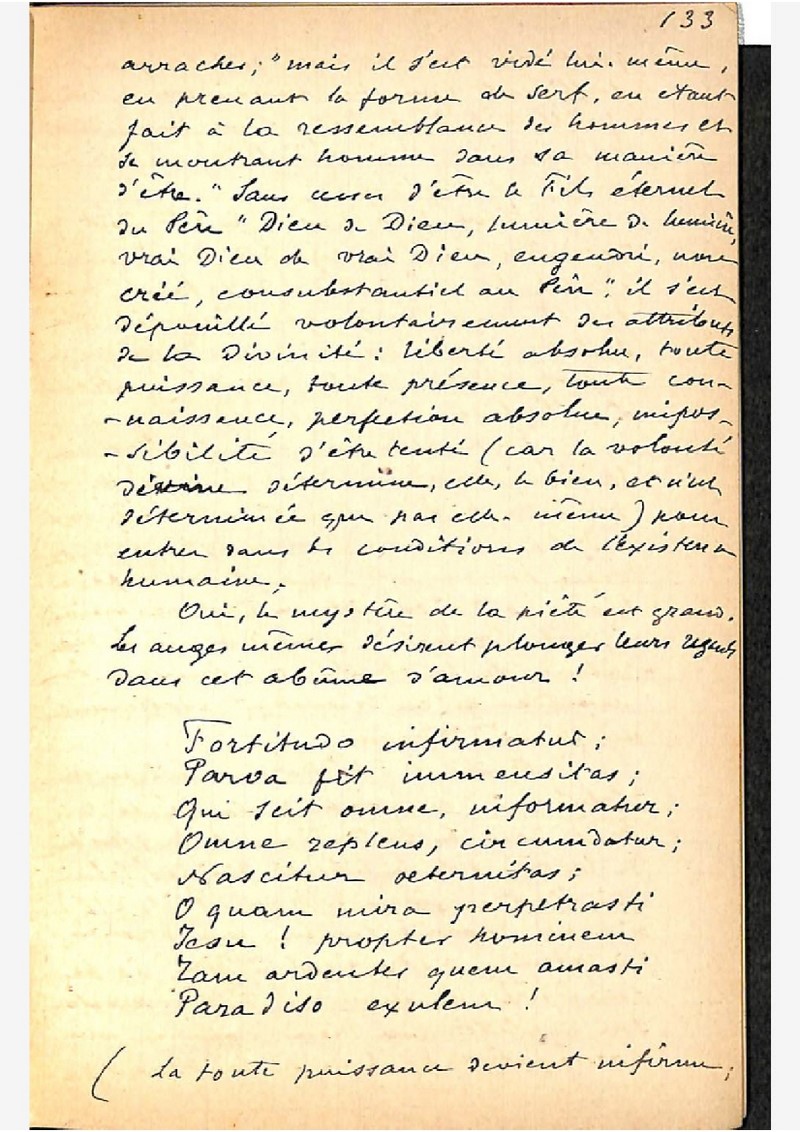 133
arracher; "mais il s'est vidé lui-même,
en prenant la forme de serf, en étant
fait à la ressemblance des hommes et
se montrant homme dans sa manière
d'être." Sans cesser d'être le Fils éternel
du Père "Dieu de Dieu, lumière de lumière,
vrai Dieu de vrai Dieu, engendré, non
créé, consubstantiel au Père", il s'est
dépouillé volontairement des attributs
de la Divinité: liberté absolue, toute
puissance, toute présence, toute con-
-naissance, perfection absolue, impos-
-sibilité d'être tenté (car la volonté
divine détermine, elle, le bien, et n'est
déterminée que par elle-même) pour
entrer dans les conditions de l'existence
humaine.
Oui, le mystère de la piété est grand.
Les anges mêmes désirent plonger leurs regards
dans cet abîme d'amour!
Fortitudo infirmatur;
Parva fit immensitas;
Qui scit omne, informatur;
Omne replens, circumdatur;
Nascitur aeternitas;
O quam mira perpetrasti
Jesu! propter hominem
Tam ardenter quem amasti
Paradiso exulem!
( La toute puissance devient infirme;